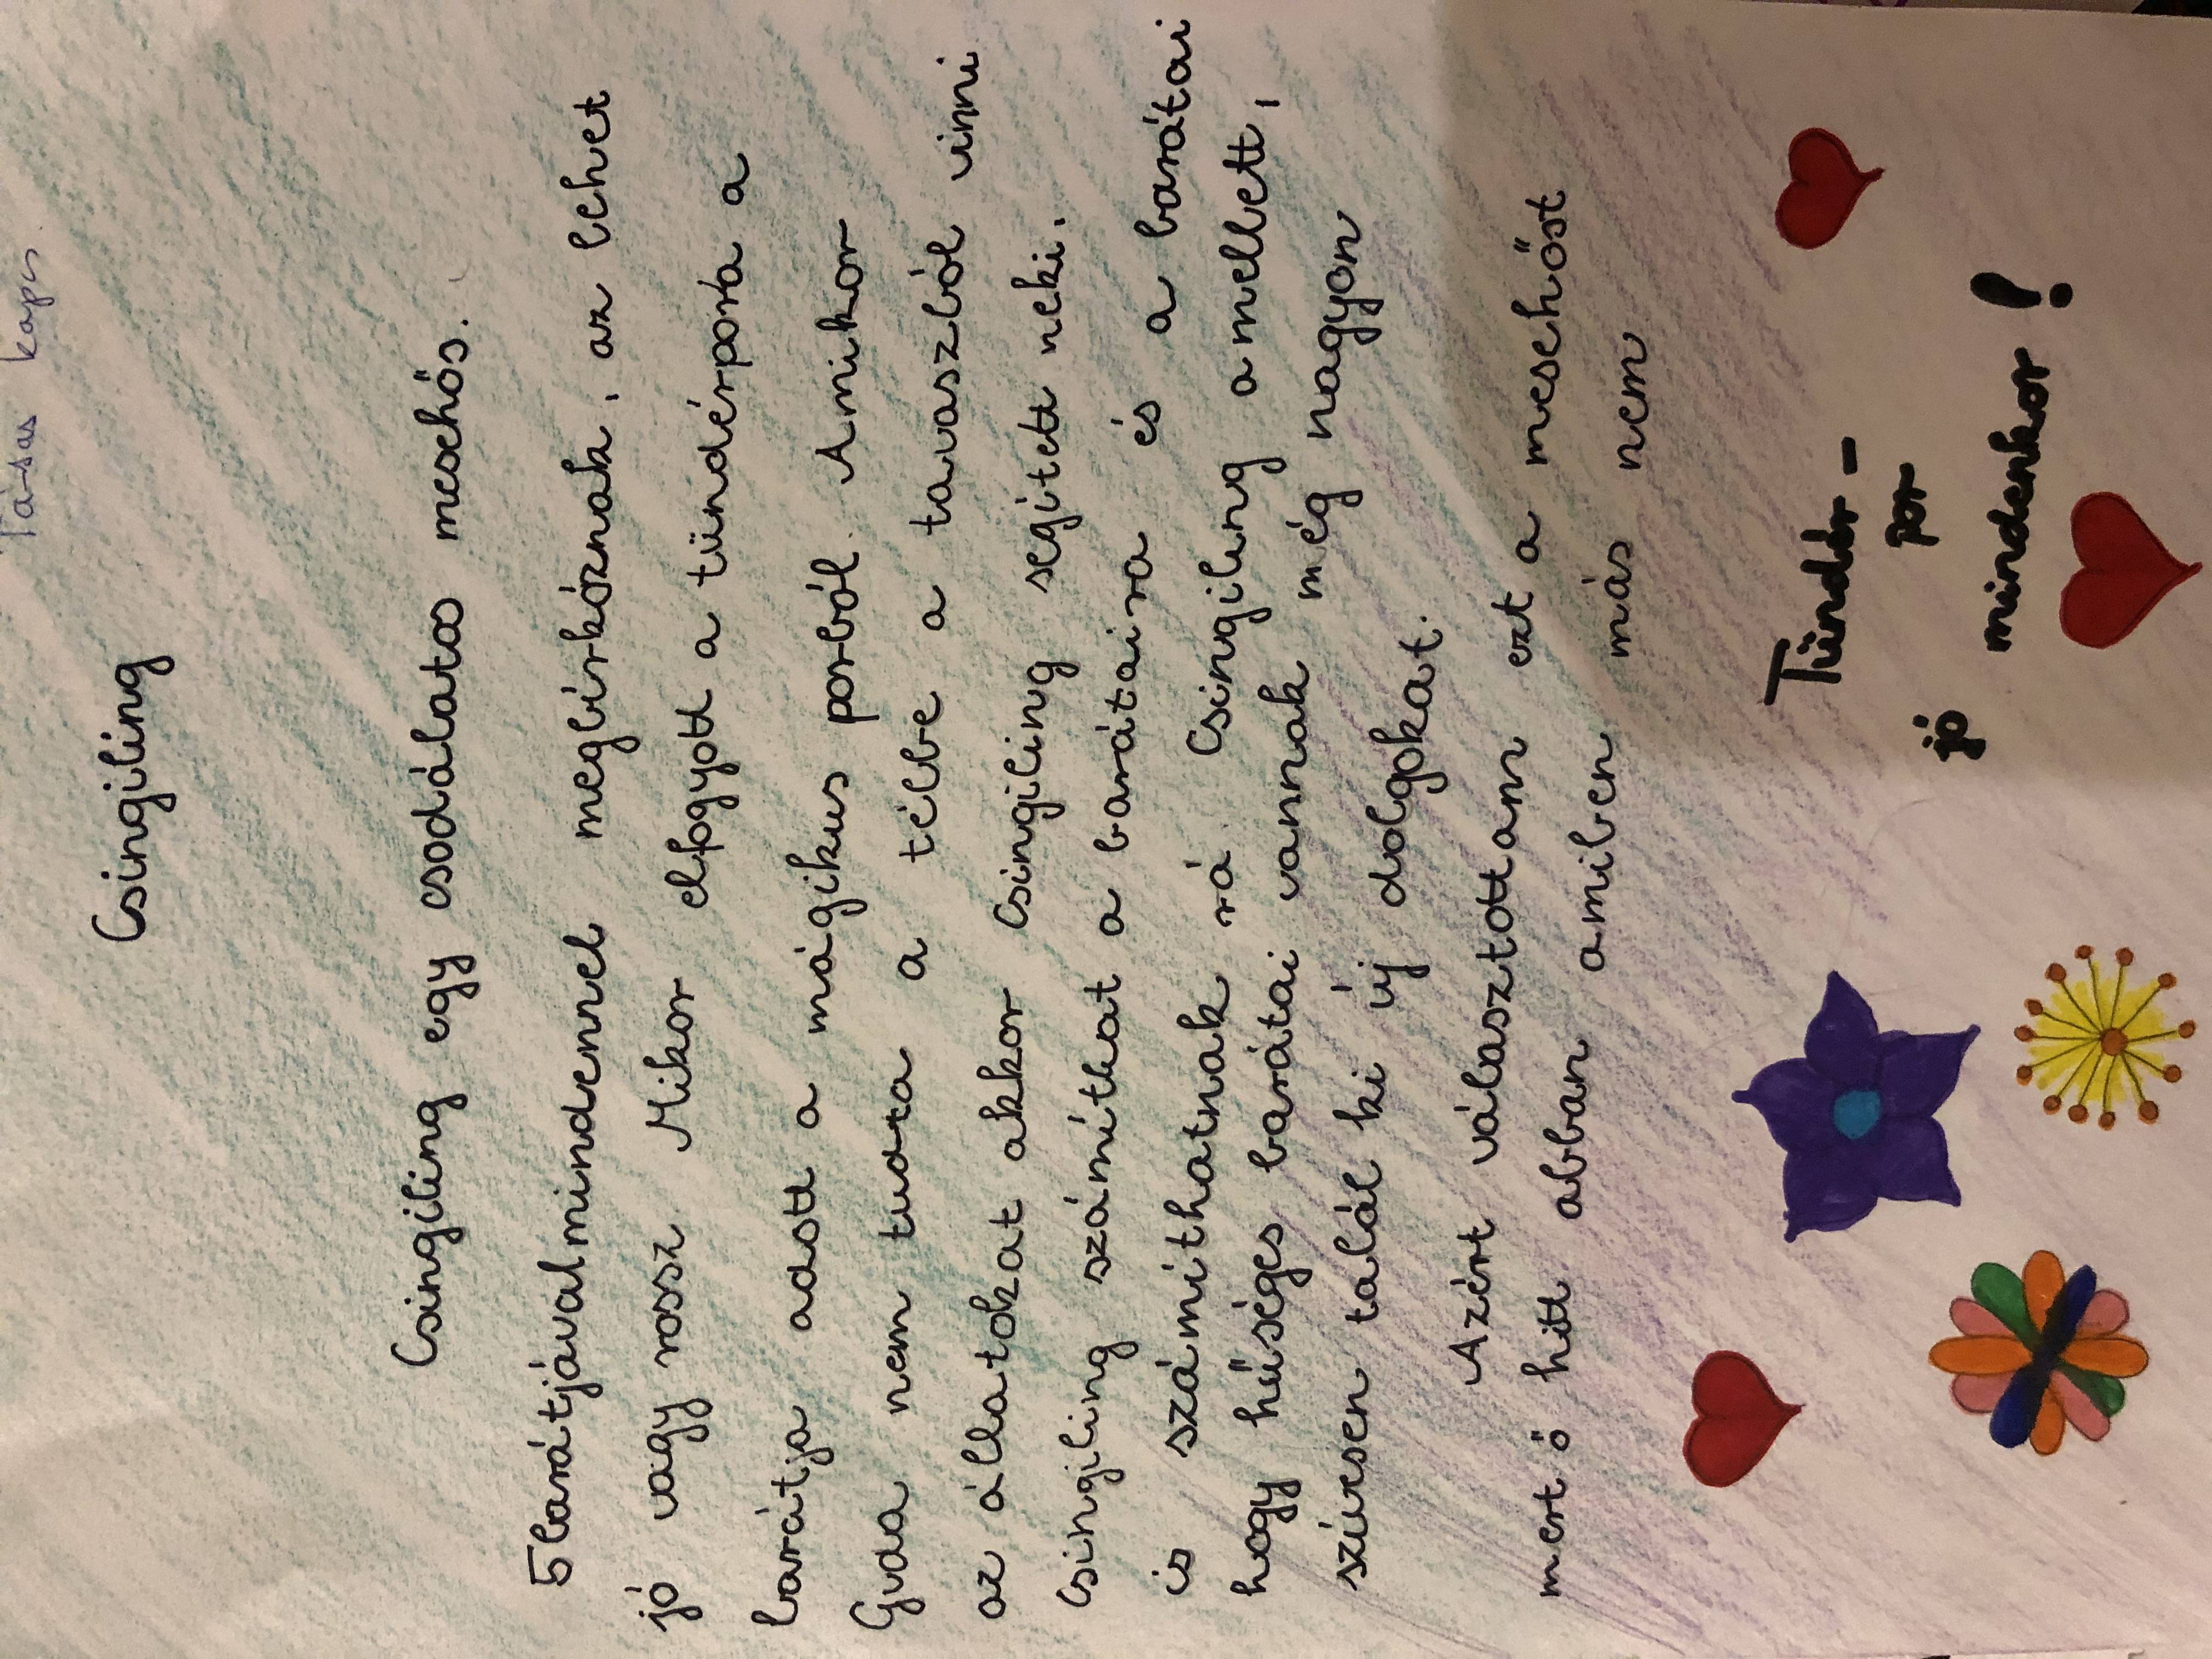 Társas kapcs
Csingiling
Csingiling egy csodálatos mesehős.
5 barátjával mindennel megbirkóznak, az lehet
jó vagy rossz Mikor elfogyott a tündérpora a
barátja adott a mágikus porból. Amikor
Gvda nem tudta a télbe a tavaszból vinni
az állatokat akkor Csingiling segített neki.
Csingiling számíthat a barátaira és a barátai
is számíthatnak rá. Csingiling amellett,
hogy hűséges barátai vannak még nagyon
szívesen talál ki új dolgokat.
Azért választottam ezt a mesehőst
mert ő hitt abban amiben más nem
Tündér-
por
jó
mindenkor!